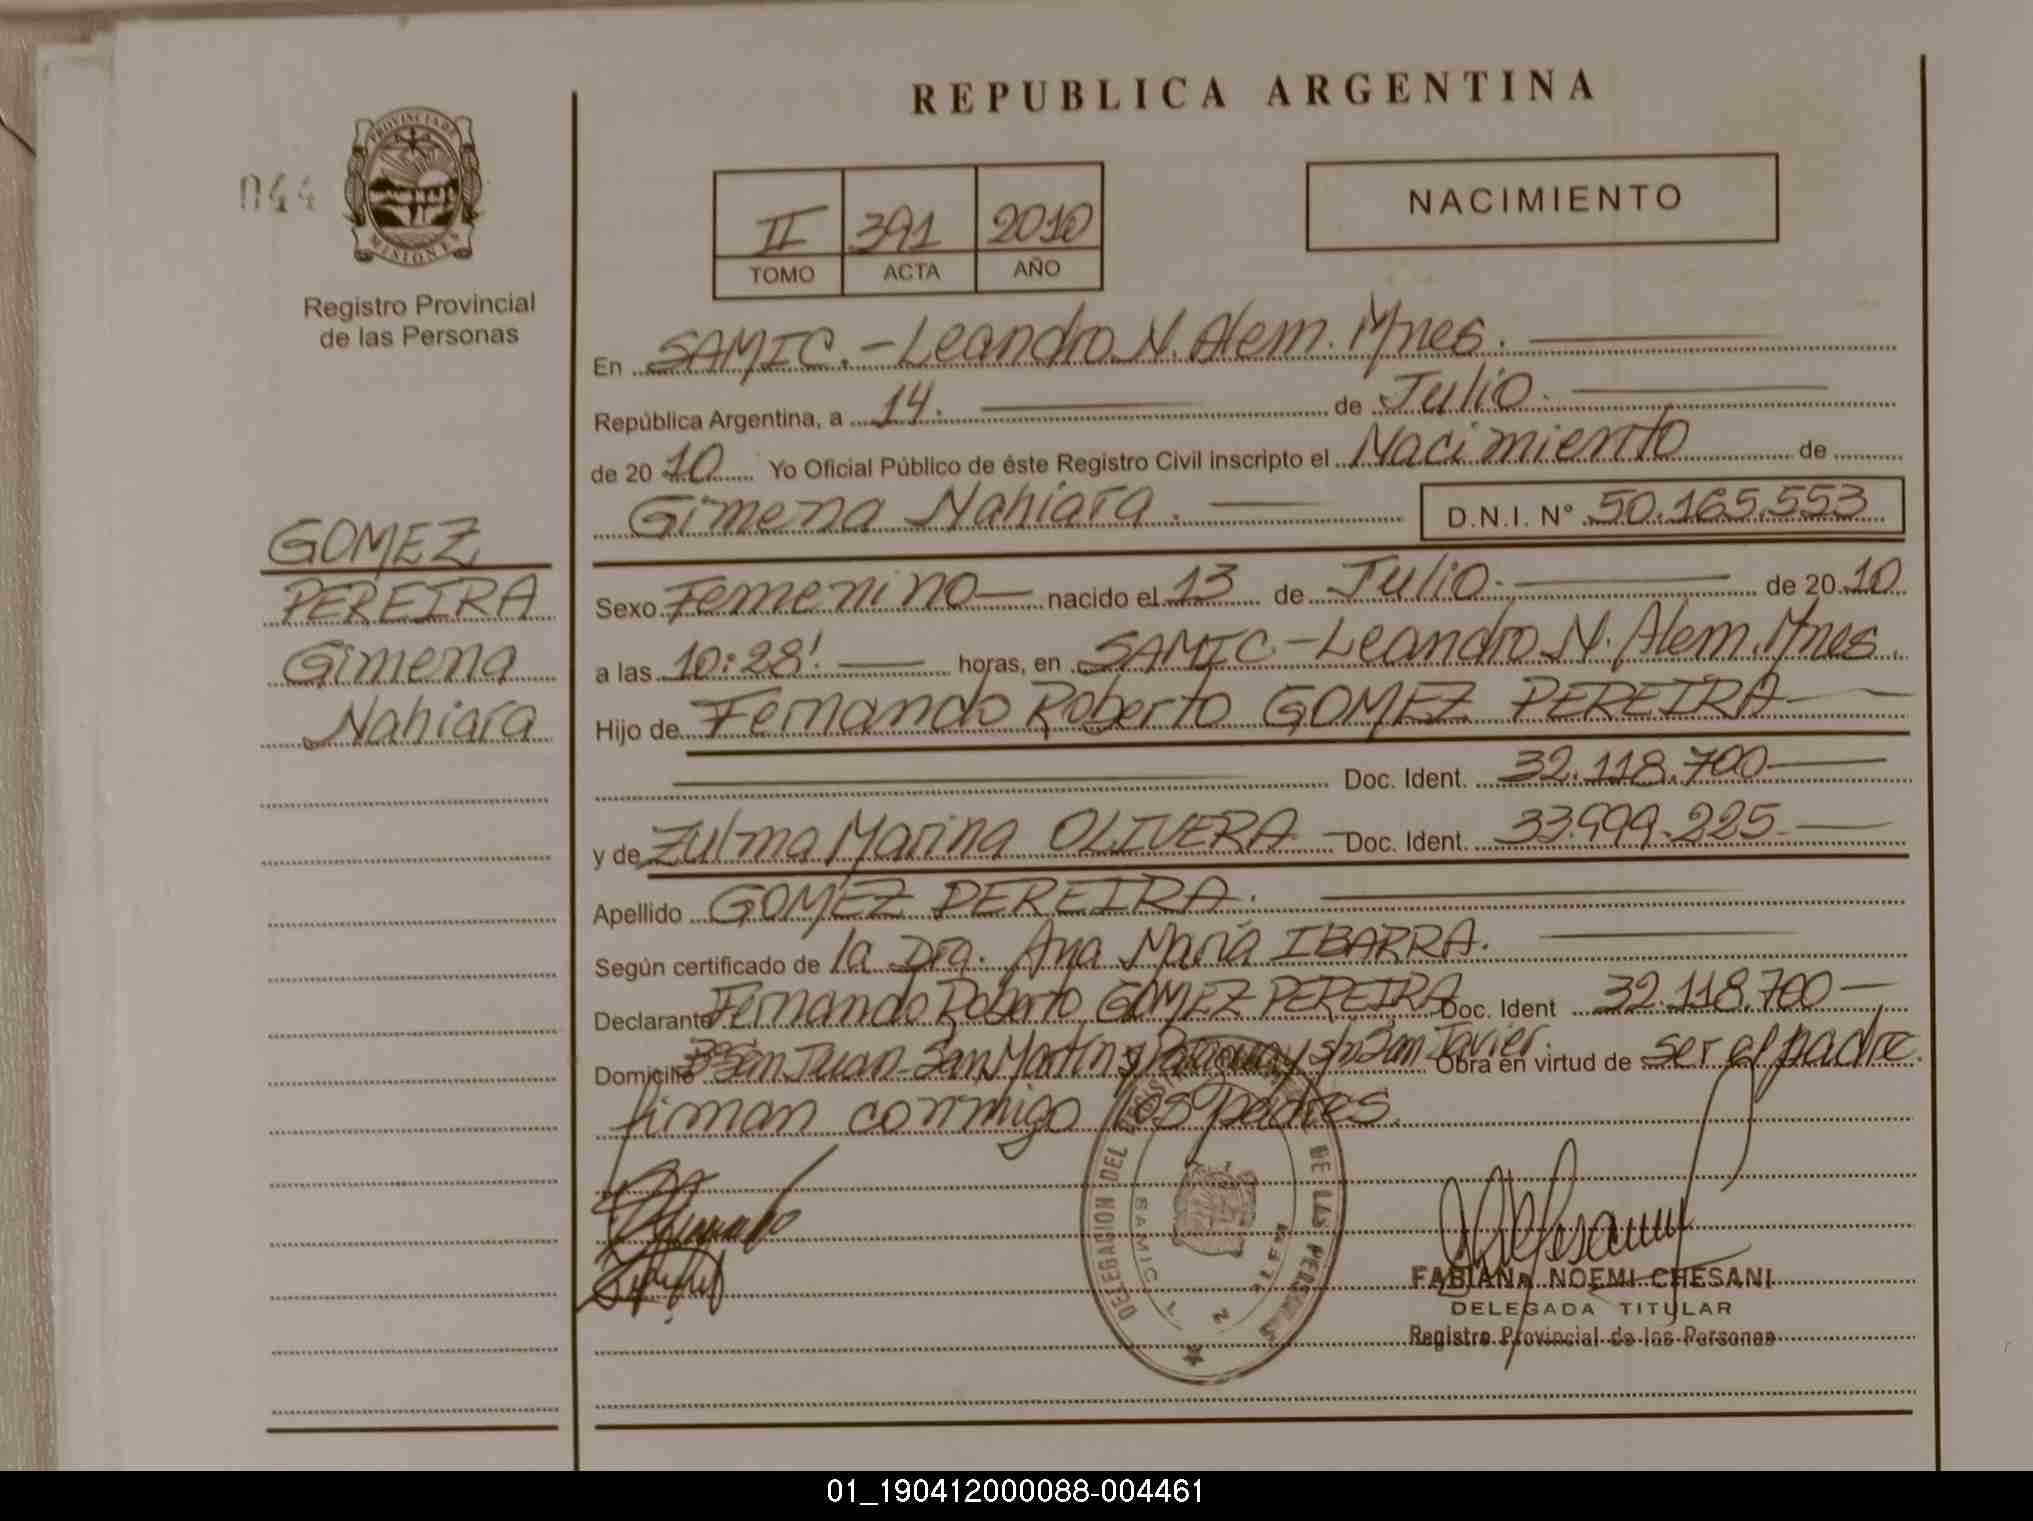 REPUBLICA ARGENTINA
PROVINCIA DE
MISIONES
044
Registro Provincial
de las Personas
NACIMIENTO
II 391 2010
TOMO ACTA AÑO
En SAMIC.-Leandro N. Alem. Mnes.
República Argentina, a 14. de Julio.
de 20 10 Yo Oficial Público de éste Registro Civil inscripto el Nacimiento de
Gimena Nahiara. D.N.I. N° 50.165.553
GOMEZ
PEREIRA
Gimena
Nahiara
Sexo Femenino nacido el 13 de Julio. de 20 10
a las 10:28'. horas, en SAMIC-Leandro N. Alem. Mnes.
Hijo de Fernando Roberto GOMEZ PEREIRA
Doc. Ident. 32.118.700
y de Zulma Marina OLIVERA Doc. Ident. 33.999.225
Apellido GOMEZ PEREIRA.
Según certificado de la Dra. Ana María IBARRA.
Declarante Fernando Roberto GOMEZ PEREIRA Doc. Ident 32.118.700
Domicilio Bº San Juan-San Martín y Paraguay s/n San Javier. Obra en virtud de ser el padre.
firman conmigo los padres.
DELEGACION DEL DE LAS
SAMIC L N ALEM
FABIANA NOEMI CHESANI
DELEGADA TITULAR
Registro Provincial de las Personas
01_190412000088-004461